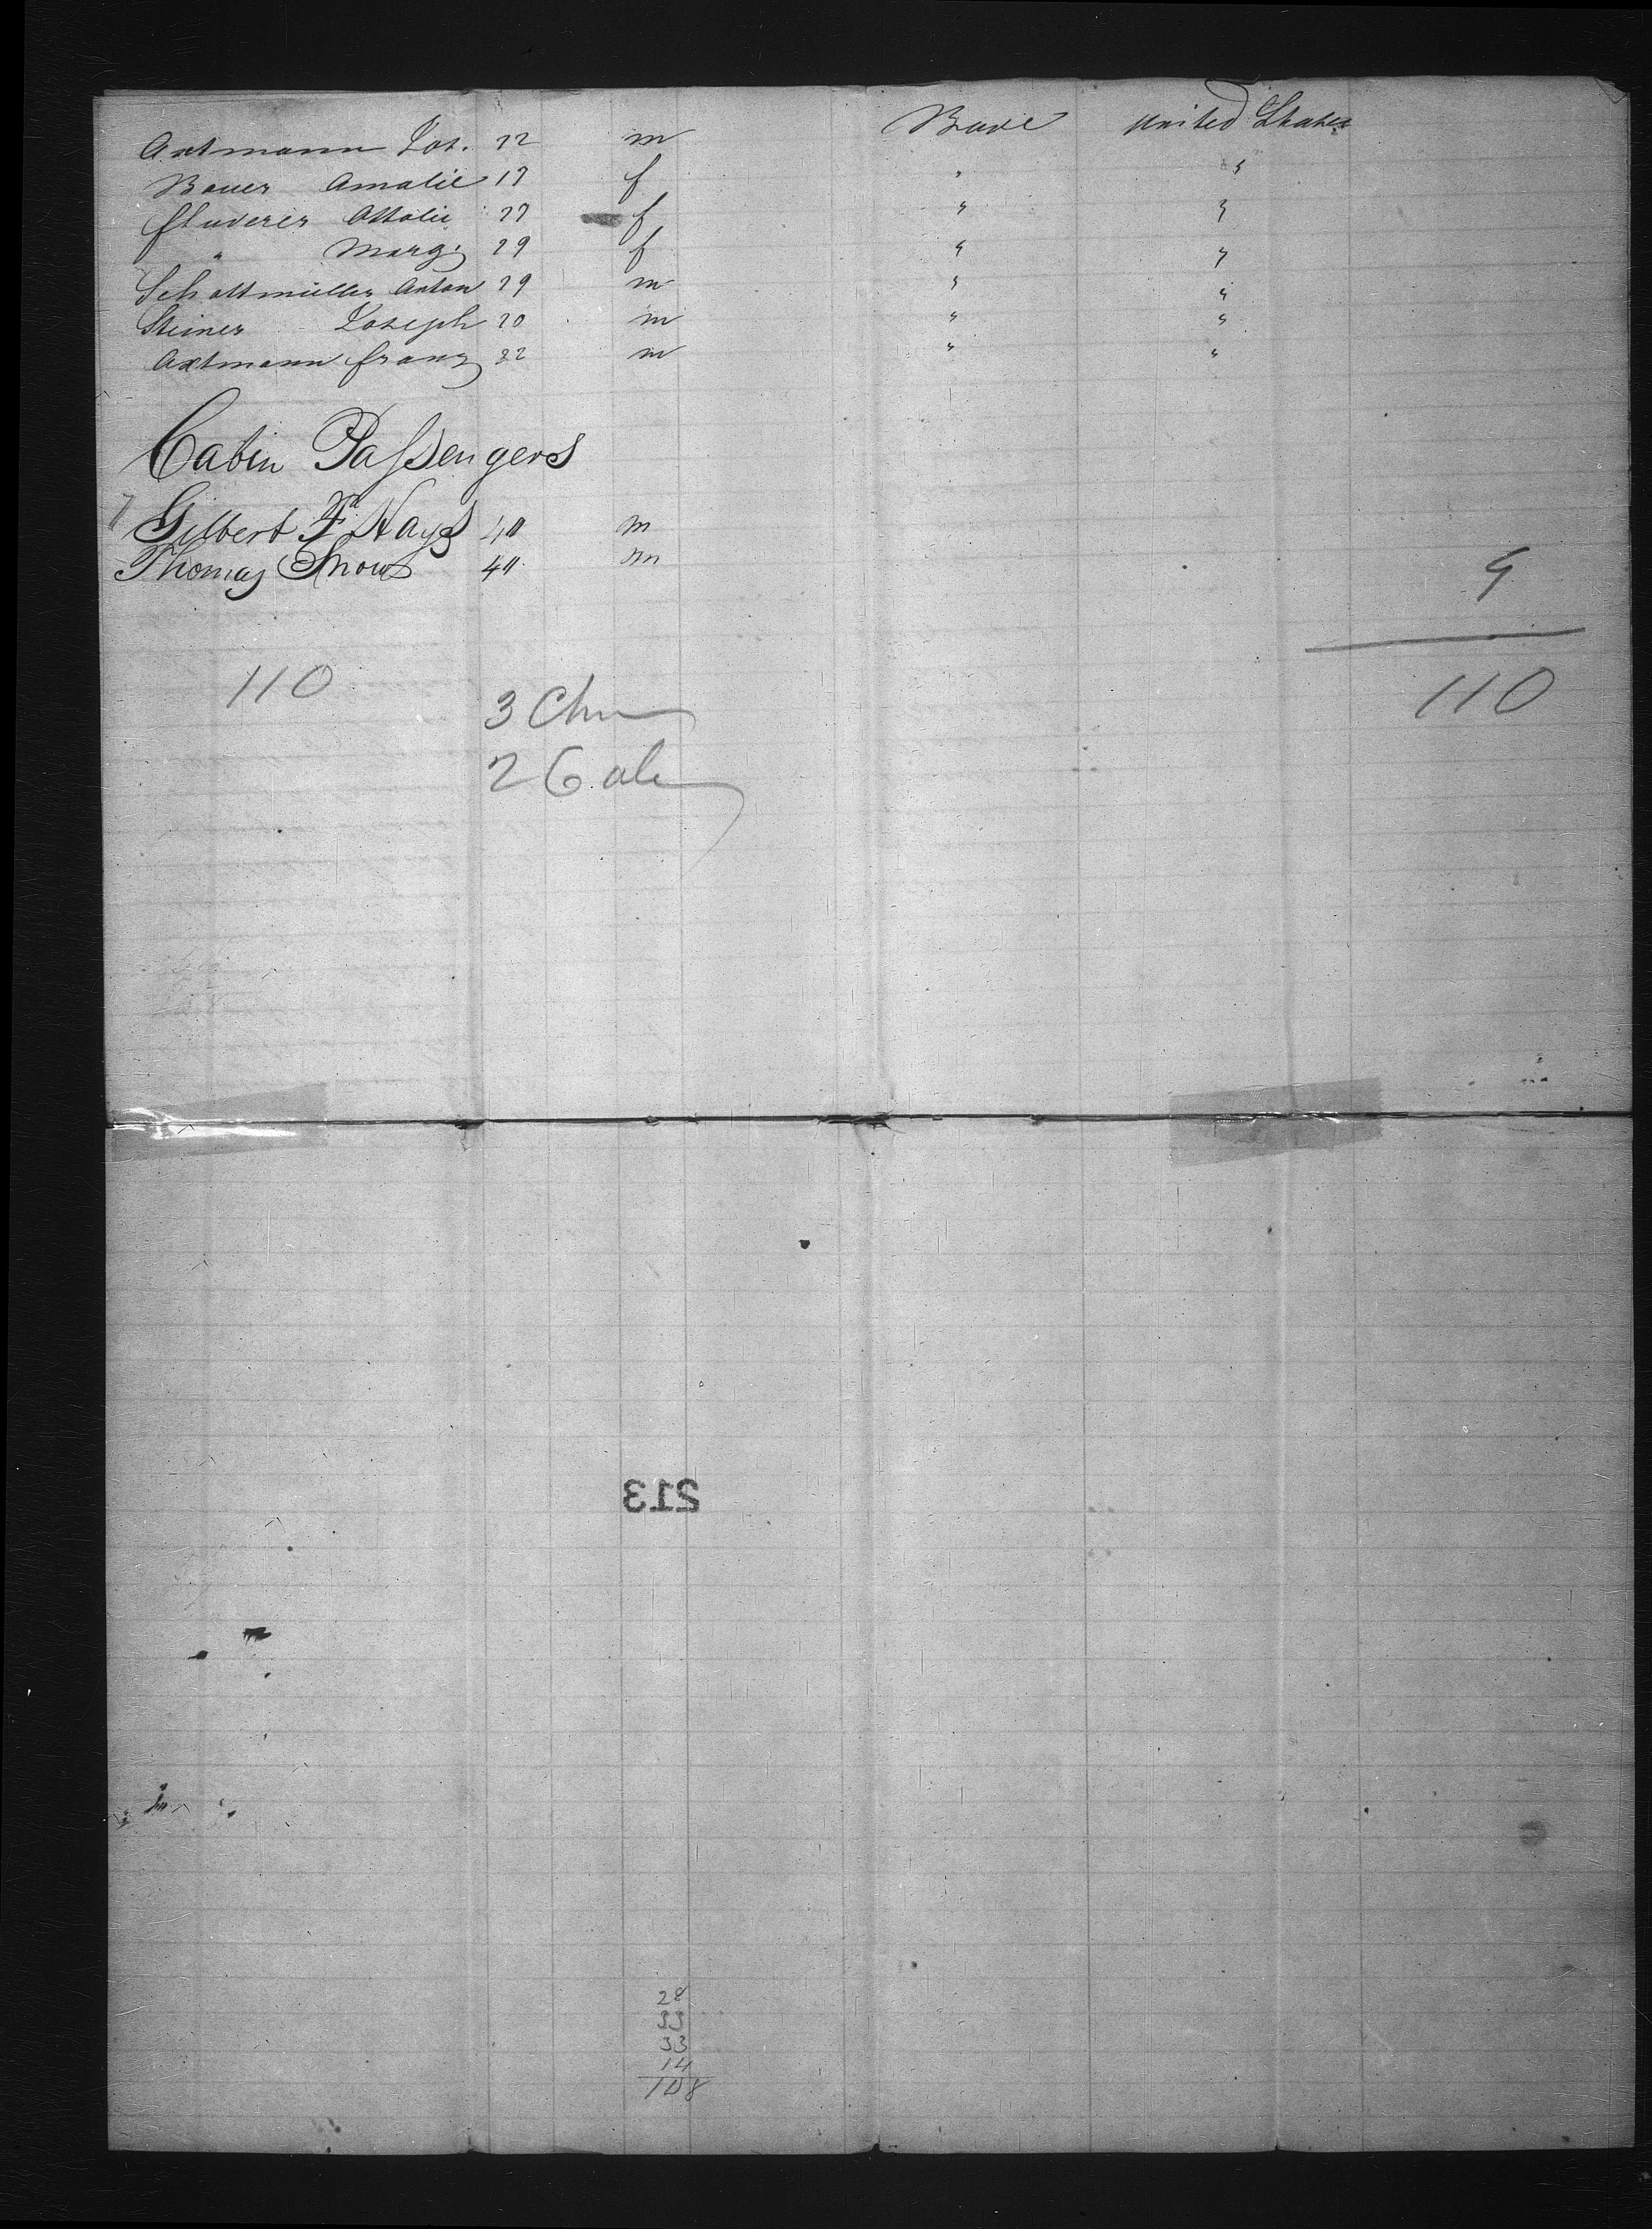 Axtmann Jos. 22 m Bave United States
Bauer Amalie 17 f " "
Fluderer Ottolie 27 f " "
" Marg. 29 f " "
Schottmüller Anton 29 m " "
Steiner Joseph 20 m " "
Axtmann Franz 32 m " "
Cabin Passengers
Gilbert F Hays 40 m
Thomas Snow 40 m
9
110
110
3 Chn
2 Cab
213
28
33
33
14
108